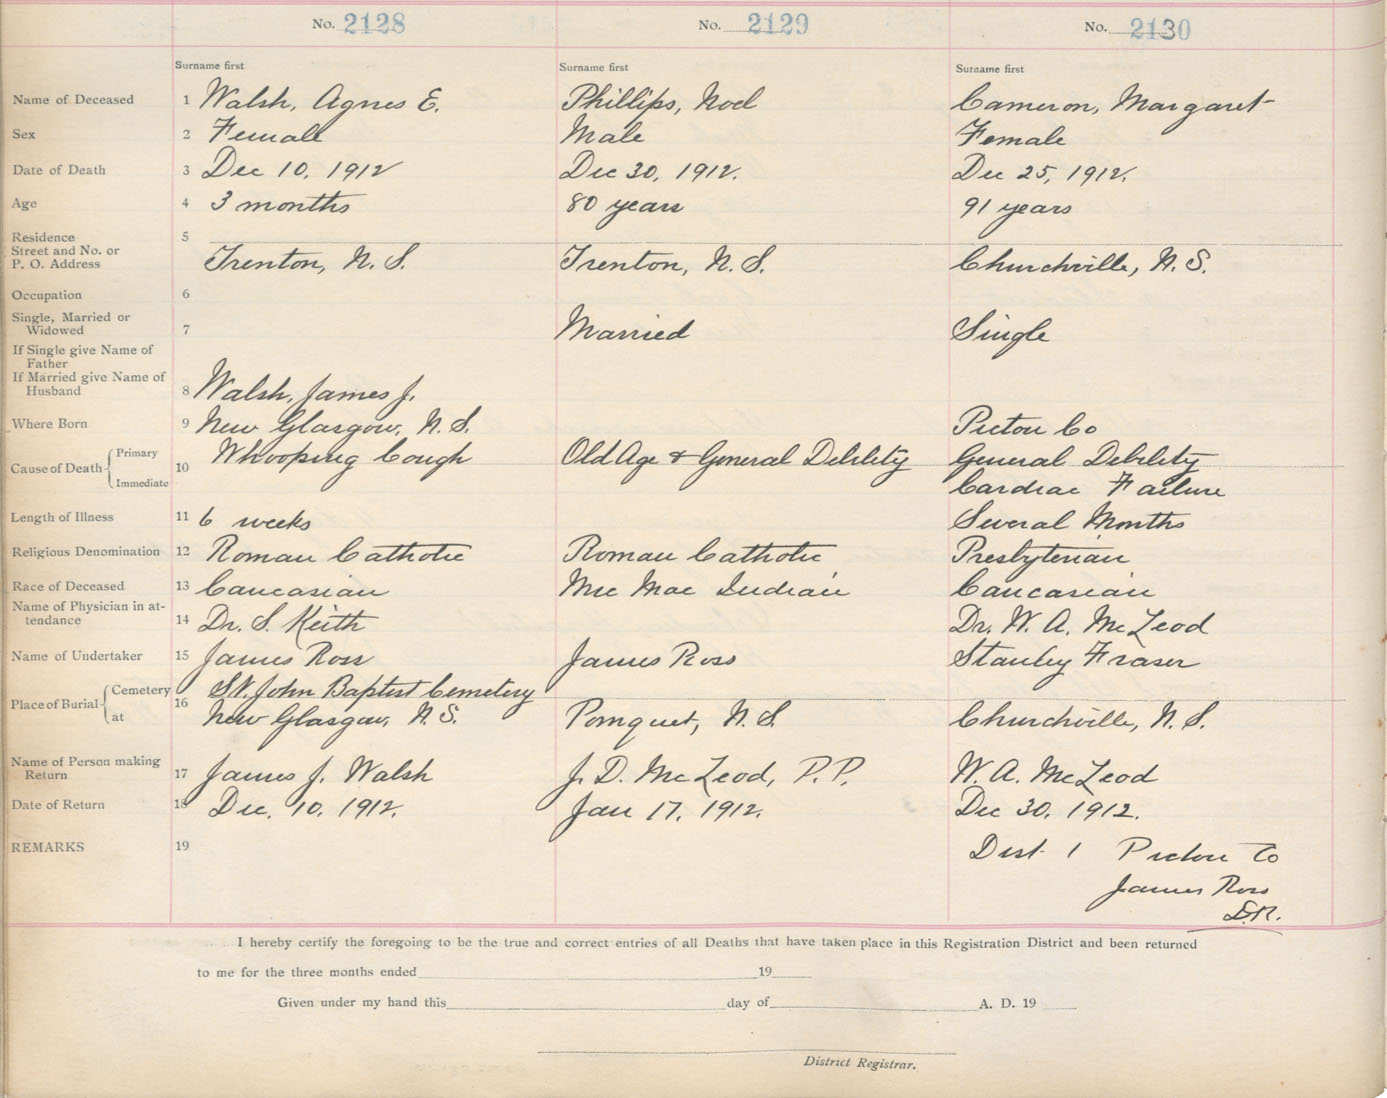 No. 2128 No. 2129 No. 2130
Surname first Surname first Surname first
Name of Deceased 1 Walsh, Agnes E. Phillips, Noel Cameron, Margaret
Sex 2 Female Male Female
Date of Death 3 Dec 10, 1912 Dec 30, 1912. Dec 25, 1912.
Age 4 3 months 80 years 91 years
Residence 5
Street and No. or
P. O. Address Trenton, N. S. Trenton, N. S. Churchville, N. S.
Occupation 6
Single, Married or
Widowed 7 Married Single
If Single give Name of
Father
If Married give Name of
Husband 8 Walsh, James J.
Where Born 9 New Glasgow, N. S. Pictou Co
Cause of Death { Primary 10 Whooping Cough Old Age & General Debility General Debility
Immediate Cardiac Failure
Length of Illness 11 6 weeks Several Months
Religious Denomination 12 Roman Catholic Roman Catholic Presbyterian
Race of Deceased 13 Caucasian Mic Mac Indian Caucasian
Name of Physician in at-
tendance 14 Dr. S. Keith Dr. W. A. McLeod
Name of Undertaker 15 James Ross James Ross Stanley Fraser
Place of Burial { Cemetery 16 St. John Baptist Cemetery
at New Glasgow, N. S. Pomquet, N. S. Churchville, N. S.
Name of Person making
Return 17 James J. Walsh J. D. McLeod, P. P. W. A. McLeod
Date of Return 18 Dec. 10. 1912. Jan 17, 1912. Dec 30, 1912.
REMARKS 19 Dist 1 Pictou Co
James Ross
D.R.
I hereby certify the foregoing to be the true and correct entries of all Deaths that have taken place in this Registration District and been returned
to me for the three months ended 19
Given under my hand this day of A. D. 19
District Registrar.